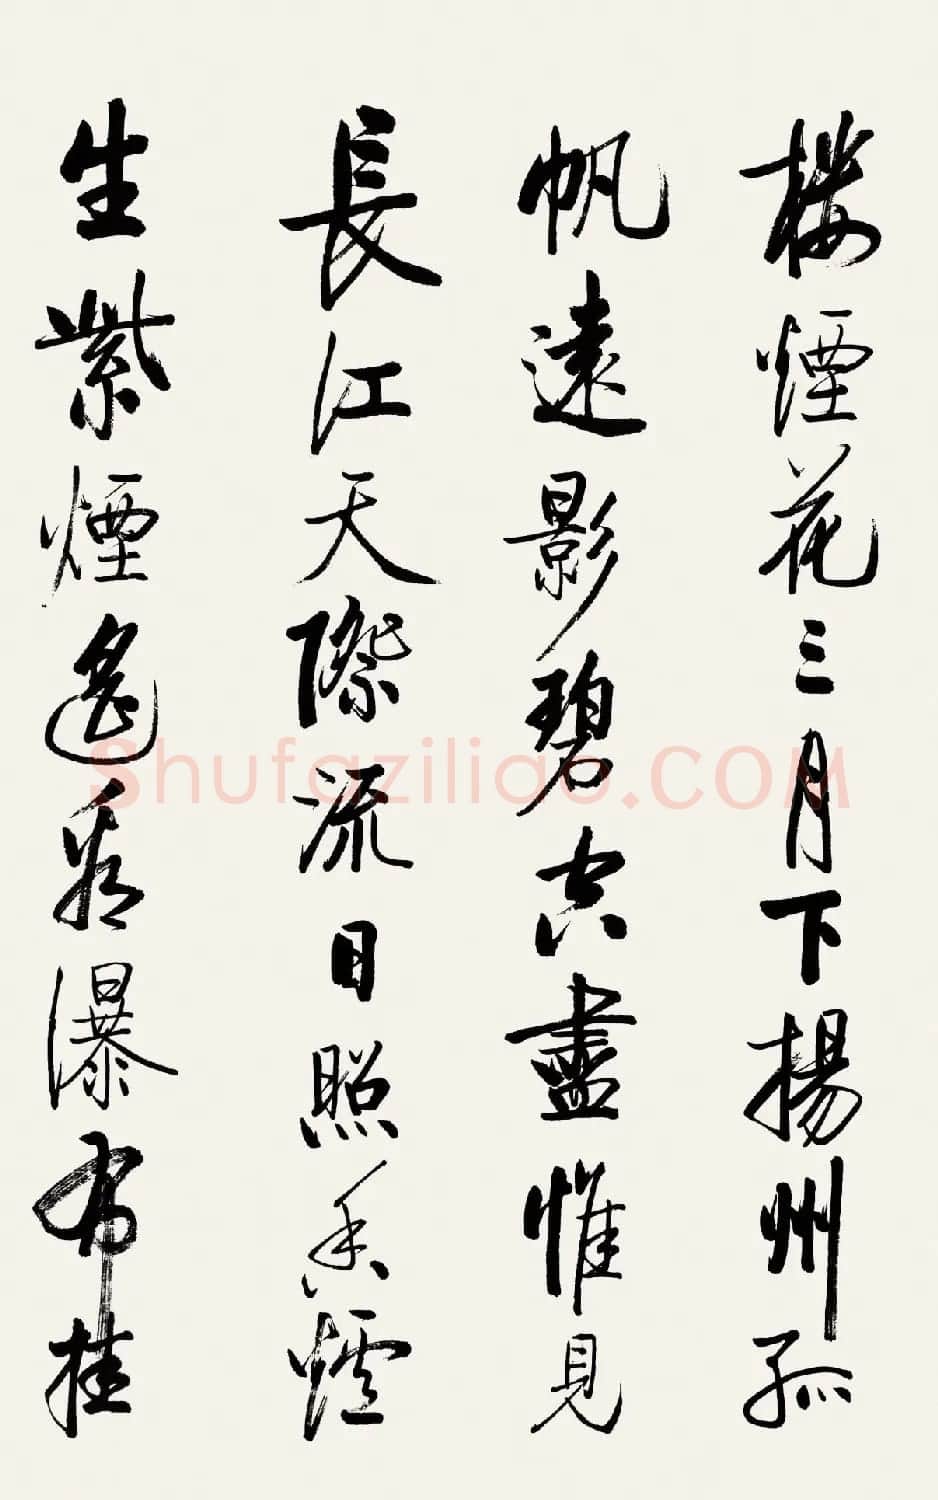 楼煙花三月下揚州孤
帆遠影碧空盡惟見
長江天際流日照香爐
生紫煙遙看瀑布挂
Shufaziliao.COM